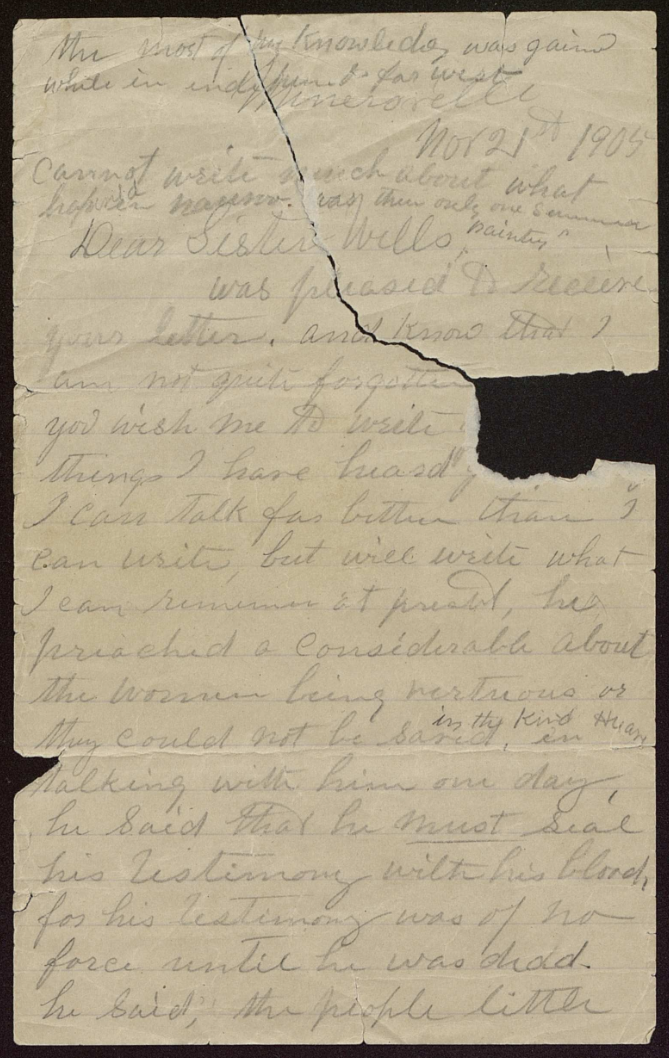 the most of my Knowledge, was gaind
while in far west
Nov 21st 1905
cannot write much about what
hapend in nauvoo. was then only one Summer
Dear Sister Wells,
was pleased to receive
your letter. and Know that I
am not quite forgotten
you wish me to write
things I have heard
I can talk far better than I
can write, but will write what
I can remember at presant, he
preached a considerable about
the women being vertuous or
they could not be saved, in
in the Kind
talking with him one day,
he Said that he must seal
his testimony with his blood,
for his testimony was of no
force until he was dead.
he said, the people little